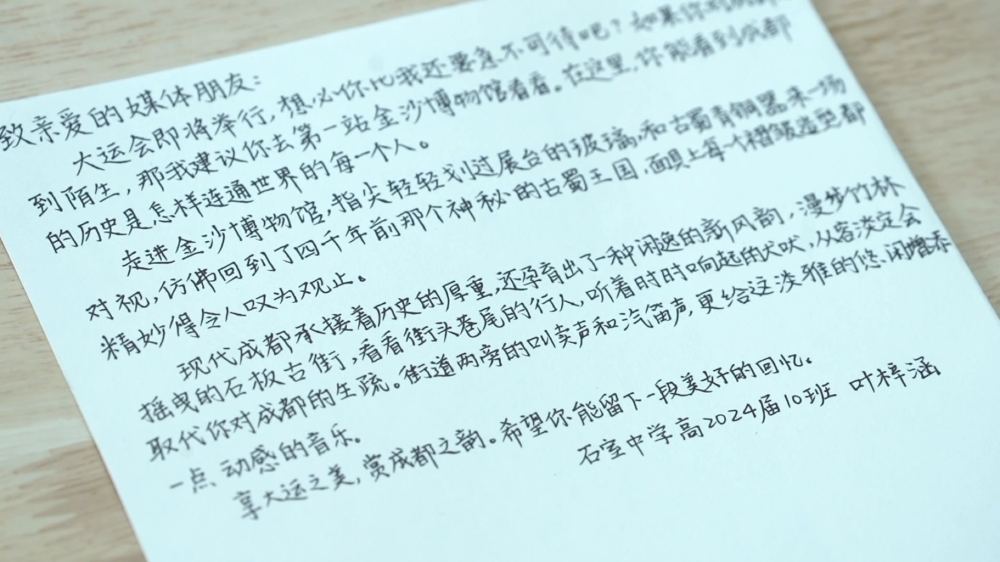 致亲爱的媒体朋友：
大运会即将举行，想必你比我还要急不可待吧？如果你对成都
到陌生，那我建议你去第一站金沙博物馆看看。在这里，你能看到成都
的历史是怎样连通世界的每一个人。
走进金沙博物馆，指尖轻轻划过展台的玻璃，和古蜀青铜器来一场
对视，仿佛回到了四千年前那个神秘的古蜀王国，面具上每一个褶皱造型都
精妙得令人叹为观止。
现代成都承接着历史的厚重，还孕育出了一种闲逸的新风韵，漫步竹林
摇曳的石板古街，看看街头巷尾的行人，听着时时响起的犬吠，从容淡定会
取代你对成都的生疏。街道两旁的叫卖声和汽笛声，更给这淡雅的悠闲增添
一点动感的音乐。
享大运之美，赏成都之韵。希望你能留下一段美好的回忆。
石室中学高2024届10班 叶梓涵